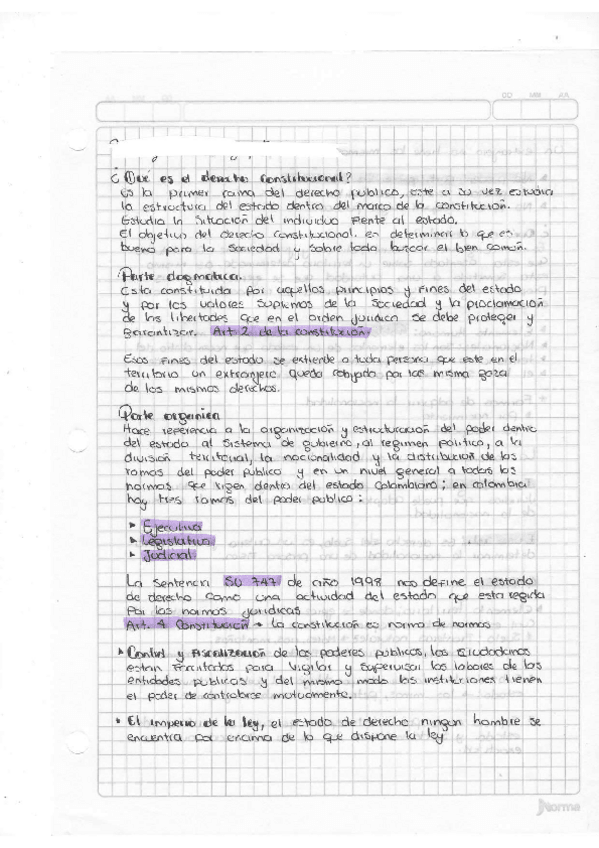 ¿Qué es el derecho Constitucional?
Es la primer rama del derecho publico, este a su vez estudia
la estructura del estado dentro del marco de la constitución.
Estudia la Situación del individuo frente al estado.
El objetivo del derecho constitucional, es determinar lo que es
bueno para la Sociedad y sobre todo buscar el bien común.
Parte dogmatica.
Esta constituida por aquellos principios y fines del estado
y por los valores Supremos de la Sociedad y la proclamación
de las libertades que en el orden jurídico se debe proteger y
garantizar. Art 2 de la constitución.
Esos fines del estado se extiende a toda persona que este en el
territorio un extranjero queda cobijado por las misma goza
de los mismos derechos.
Parte organica
Hace referencia a la organización y estructuración del poder dentro
del estado al Sistema de gobierno, al regimen politico, a la
división territorial, la nacionalidad y la distribución de las
ramas del poder publico y en un nivel general a todas las
normas que rigen dentro del estado colombiano; en colombia
hay tres ramas del poder publico:
▸ Ejecutivo
▸ Legislativo
▸ Judicial
La Sentencia SU 747 de año 1998 nos define el estado
de derecho como una actividad del estado que esta regida
por las normas juridicas
Art. 4 Constitución → la constitución es norma de normas
▸ Control y Fiscalización de los poderes publicos, los Ciudadanos
estan facultados para Vigilar y supervisar las labores de las
entidades publicas y del mismo modo las instituciones tienen
el poder de controlarse mutuamente.
• El imperio de la ley, el estado de derecho ningun hombre se
encuentra por encima de lo que dispone la ley
Norma